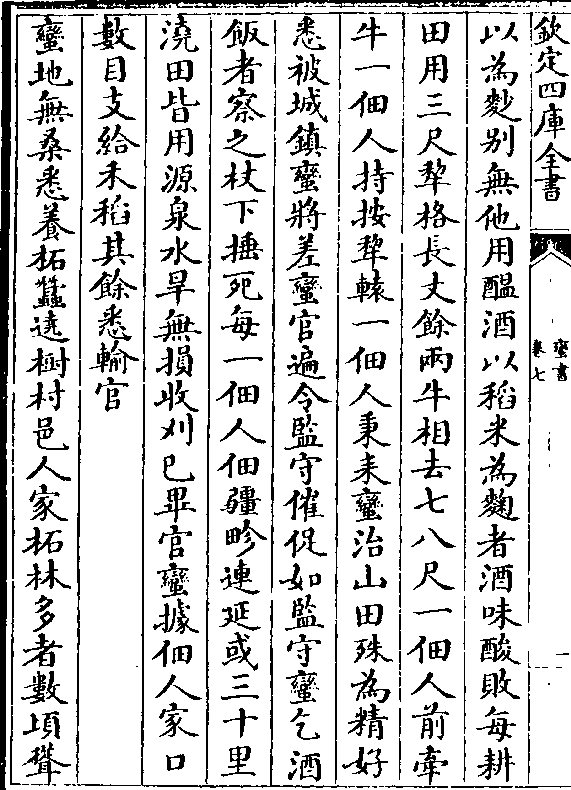 欽定四庫全書
蠻書
卷七
以為麨别無他用醖酒以稻米為麴者酒味酸敗每耕
田用三尺犂格長丈餘兩牛相去七八尺一佃人前牽
牛一佃人持按犂轅一佃人秉耒蠻治山田殊為精好
悉被城鎮蠻將差蠻官遍令監守催促如監守蠻乞酒
飯者察之杖下捶死每一佃人佃疆畛連延或三十里
澆田皆用源泉水旱無損收刈已畢官蠻據佃人家口
數目支給禾稻其餘悉輸官
蠻地無桑悉養柘蠶遶樹村邑人家柘林多者數頃聳